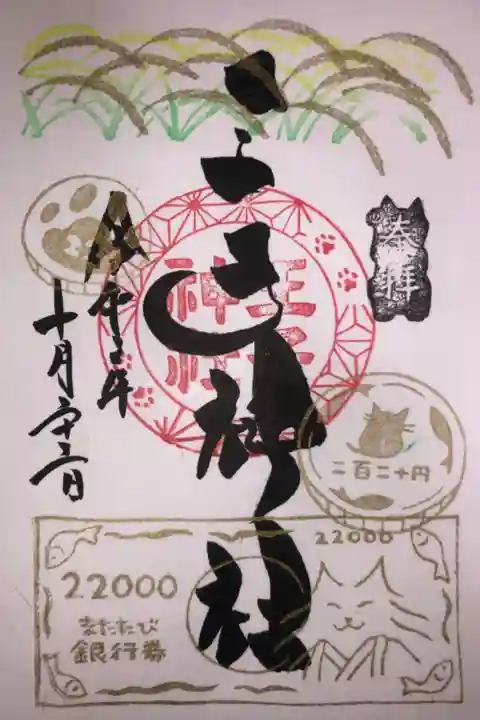 奉拝
王子神社
王子
神社
令和二年
十月二十二日
二百二十円
22000
22000
またたび
銀行券